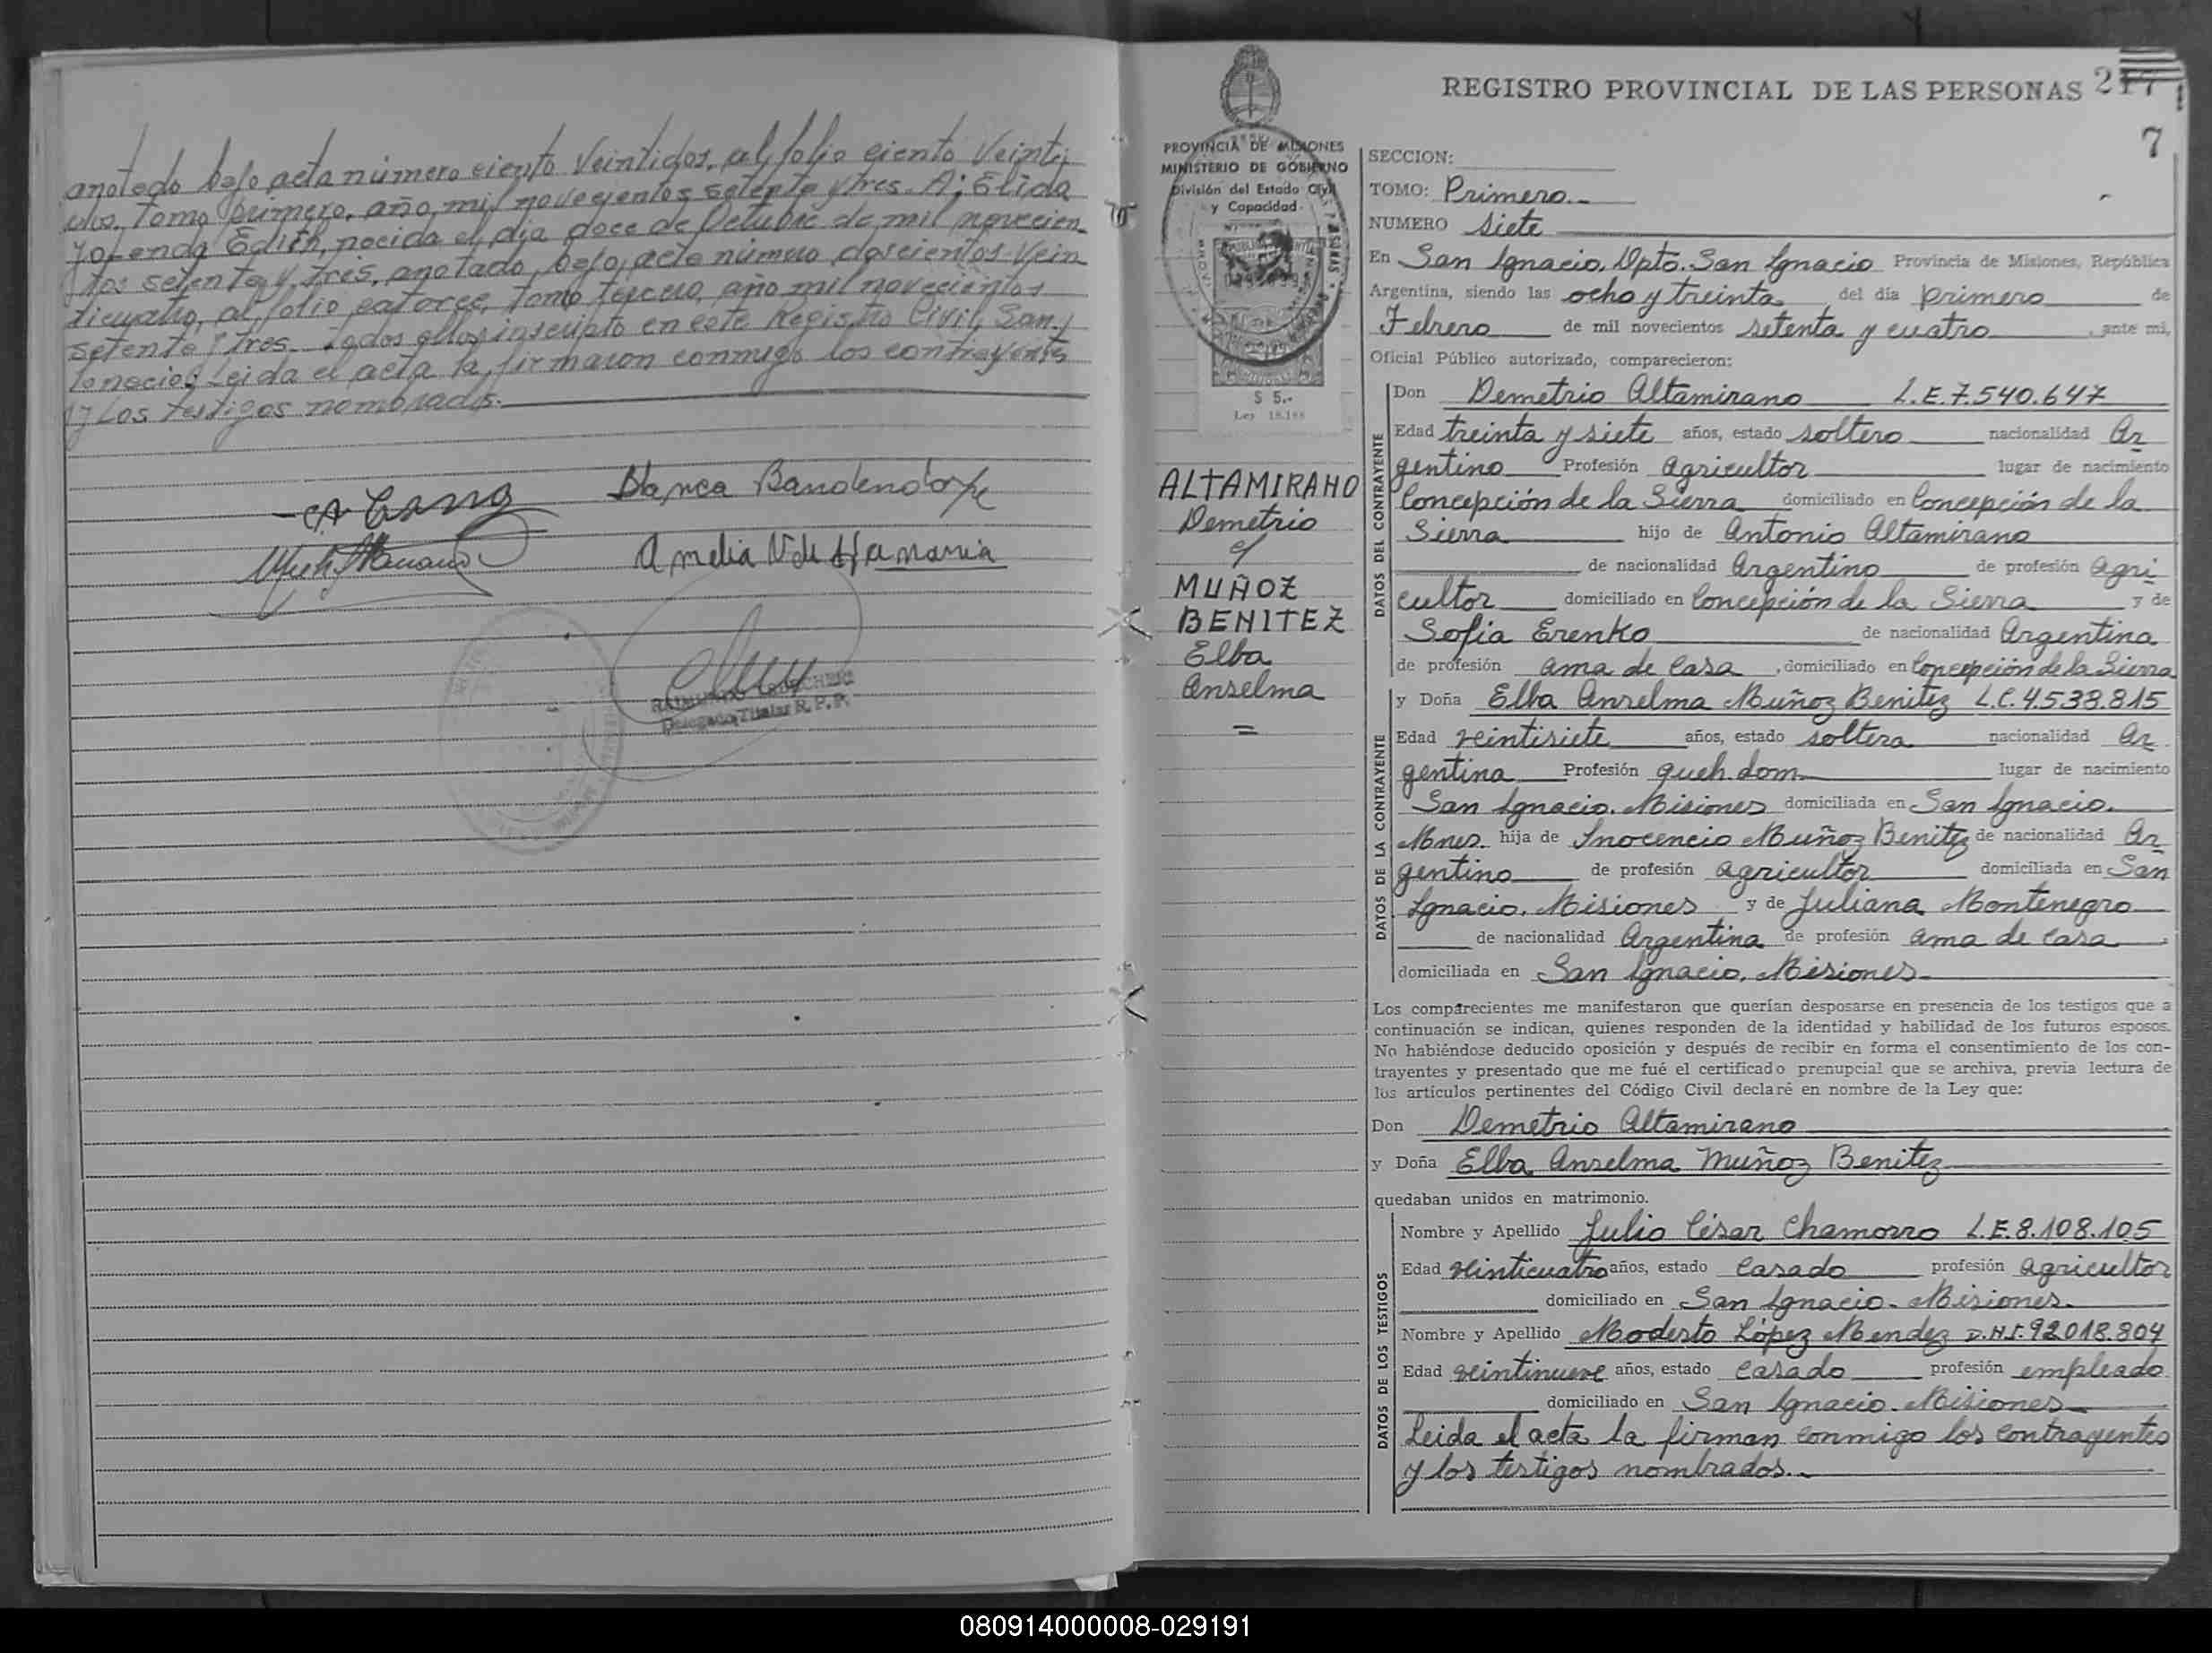 anotado bajo acta número ciento Veintidos, al folio ciento Veinti
dos, Tomo primero, año mil novecientos setenta y tres. A: Elida
Yolanda Edith, nacida el dia doce de Octubre de mil novecien
tos setenta y tres, anotado bajo acta número doscientos Vein
ticuatro, al folio catorce, Tomo tercero, año mil novecientos
setenta y tres. Todos ellos inscripto en este Registro Civil, San
Ignacio. Leida el acta la firmaron conmigo los contrayentes
y los testigos nombrados.
Blanca
Amelia V de
Delegado Titular R. P. P.
REGISTRO PROVINCIAL DE LAS PERSONAS 217
7
PROVINCIA DE MISIONES
MINISTERIO DE GOBIERNO
División del Estado Civil
y Capacidad
$ 5.-
Ley 18.188
ALTAMIRANO
Demetrio
y
MUÑOZ
BENITEZ
Elba
Anselma
=
SECCION:
TOMO: Primero.-
NUMERO siete
En San Ignacio, Dpto. San Ignacio Provincia de Misiones, República
Argentina, siendo las ocho y treinta del día primero de
Febrero de mil novecientos setenta y cuatro, ante mi,
Oficial Público autorizado, comparecieron:
DATOS DEL CONTRAYENTE
Don Demetrio Altamirano L.E.7.540.647
Edad treinta y siete años, estado soltero nacionalidad Ar
gentino Profesión Agricultor lugar de nacimiento
Concepción de la Sierra domiciliado en Concepción de la
Sierra hijo de Antonio Altamirano
de nacionalidad Argentino de profesión Agri
cultor domiciliado en Concepción de la Sierra y de
Sofia Erenko de nacionalidad Argentina
de profesión ama de casa, domiciliado en Concepción de la Sierra
DATOS DE LA CONTRAYENTE
y Doña Elba Anselma Muñoz Benitez L.C.4.538.815
Edad veintisiete años, estado soltera nacionalidad Ar
gentina Profesión queh. dom. lugar de nacimiento
San Ignacio. Misiones domiciliada en San Ignacio.
Mnes. hija de Inocencio Muñoz Benitez de nacionalidad Ar
gentino de profesión agricultor domiciliada en San
Ignacio, Misiones y de Juliana Montenegro
de nacionalidad Argentina de profesión ama de casa,
domiciliada en San Ignacio, Misiones
Los comparecientes me manifestaron que querían desposarse en presencia de los testigos que a
continuación se indican, quienes responden de la identidad y habilidad de los futuros esposos.
No habiéndose deducido oposición y después de recibir en forma el consentimiento de los con-
trayentes y presentado que me fué el certificado prenupcial que se archiva, previa lectura de
los artículos pertinentes del Código Civil declaré en nombre de la Ley que:
Don Demetrio Altamirano
y Doña Elba Anselma Muñoz Benitez
quedaban unidos en matrimonio.
DATOS DE LOS TESTIGOS
Nombre y Apellido Julio César Chamorro L.E.8.108.105
Edad veinticuatro años, estado casado profesión agricultor
domiciliado en San Ignacio - Misiones.
Nombre y Apellido Modesto López Mendez D.N.I.92018.804
Edad veintinueve años, estado casado profesión empleado
domiciliado en San Ignacio - Misiones
Leida el acta la firman conmigo los contrayentes
y los testigos nombrados.-
080914000008-029191